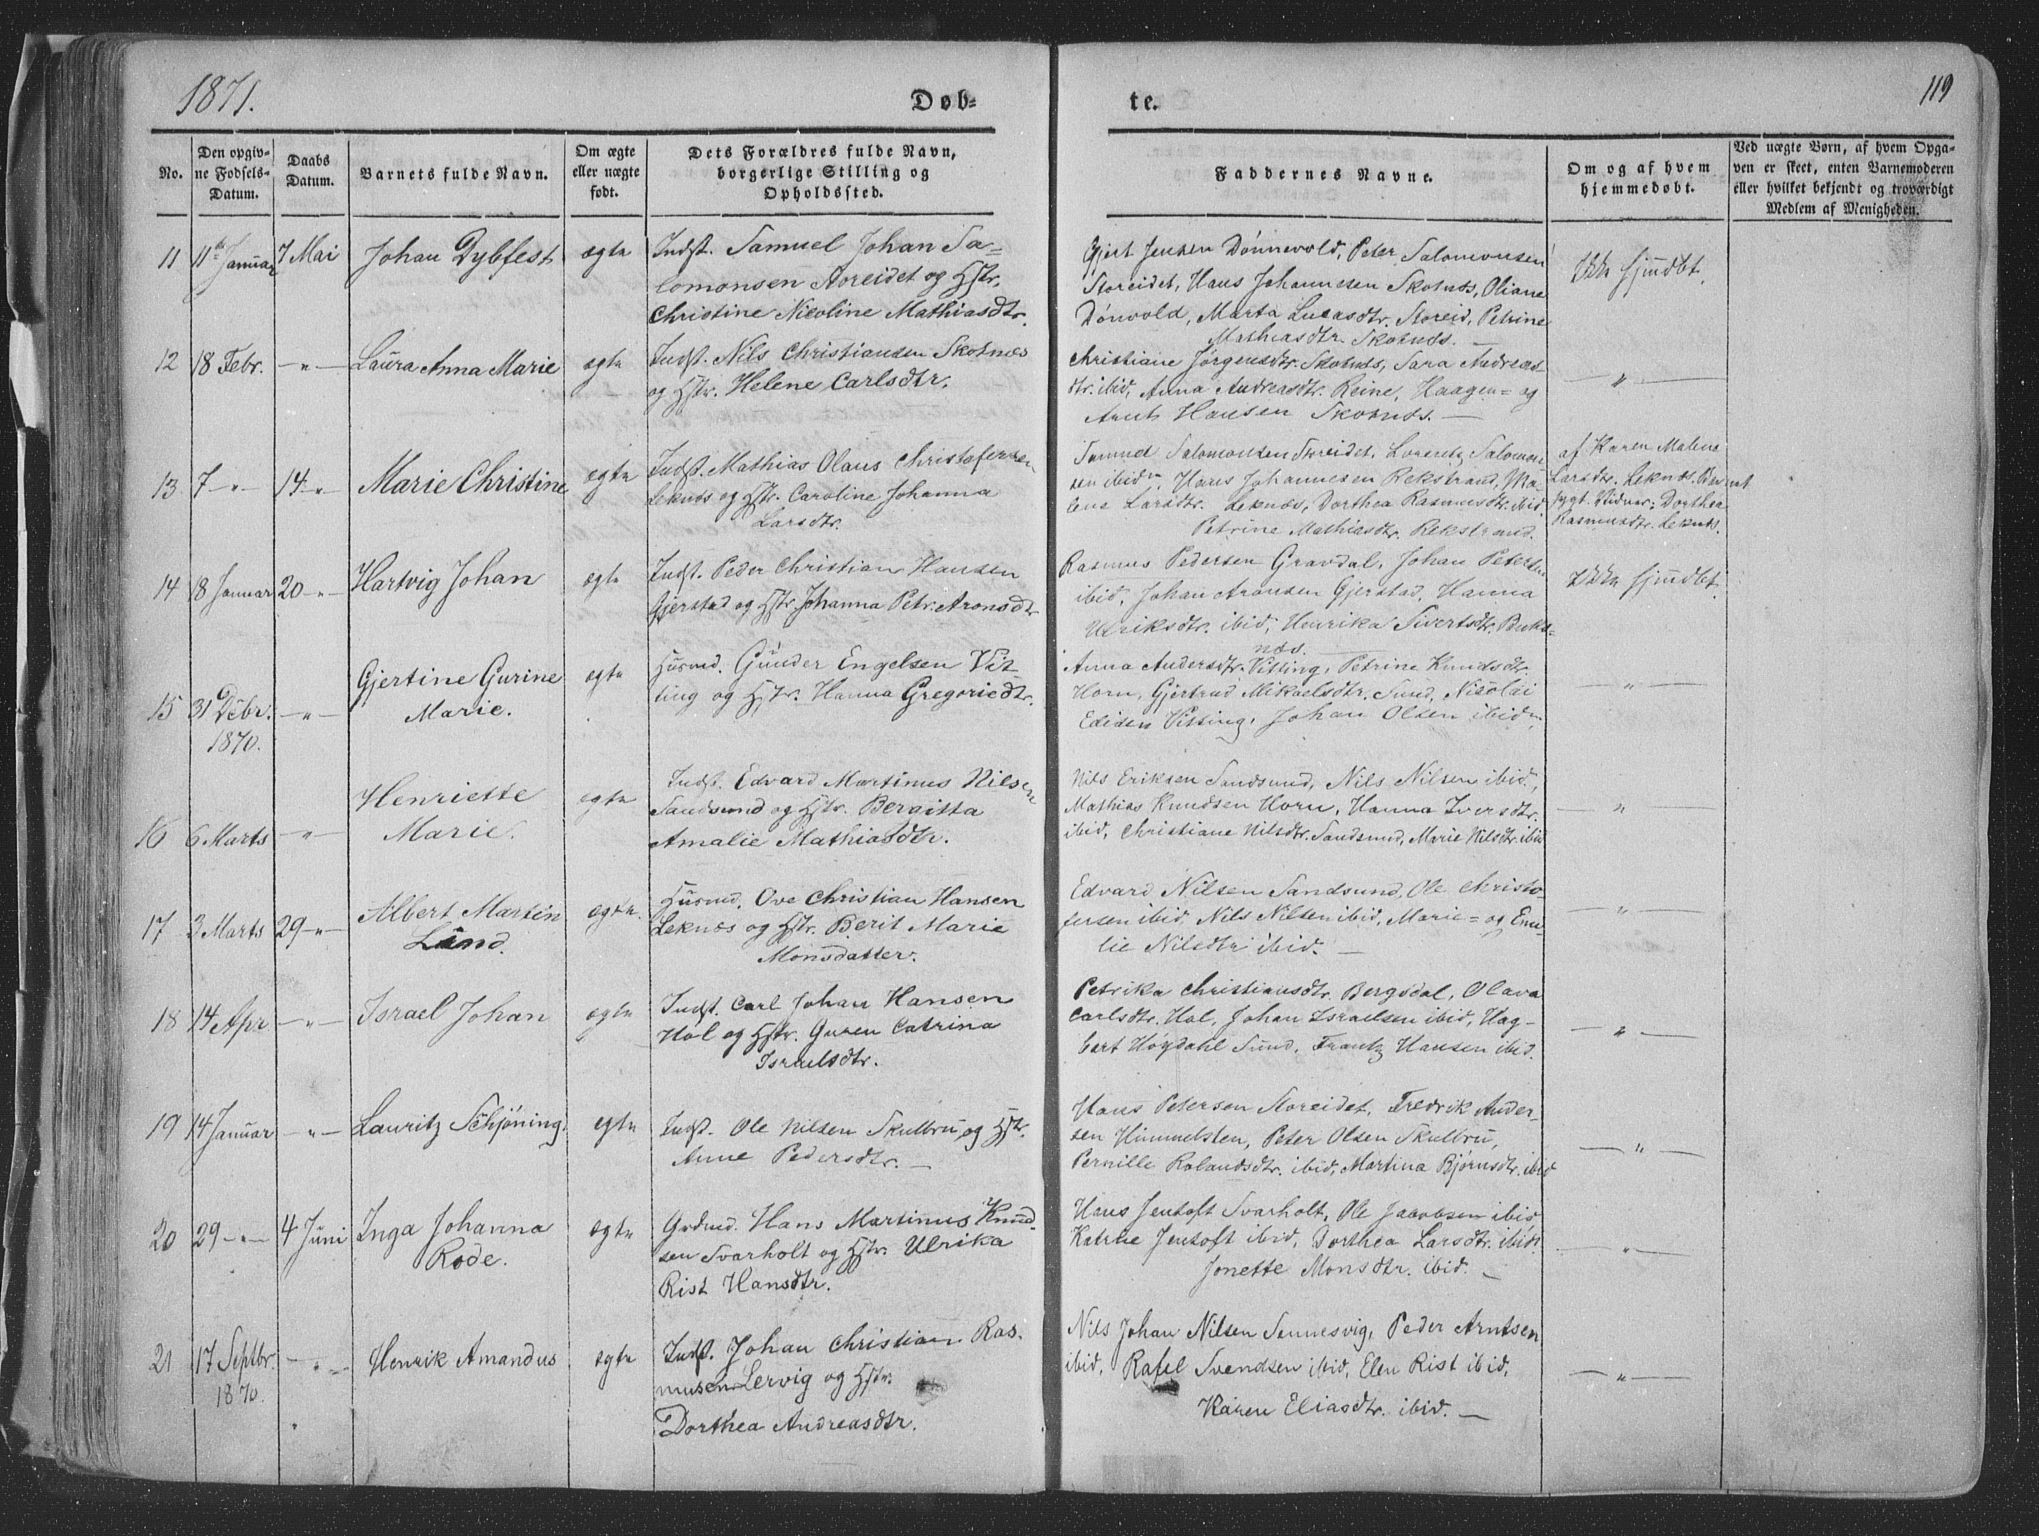 1871.
Døb-
te.
119
No.
Den opgiv-
ne Fødsels-
Datum.
Daabs
Datum.
Barnets fulde Navn.
Om ægte
eller uægte
født.
Dets Forældres fulde Navn,
borgerlige Stilling og
Opholdssted.
Faddernes Navne.
Om og af hvem
hjemmedøbt.
Ved uægte Børn, af hvem Opga-
ven er skeet, enten Barnemoderen
eller hvilket bekjendt og troværdigt
Medlem af Menigheden.
11 11te Januar 7 Mai Johan Dybfest ægte
Indst. Samuel Johan Sa=
lomonsen Storeidet og Hstr.
Christine Nicoline Mathiasdtr.
Gjert Jensen Dønnevold, Peter Salomonsen
Storeidet, Hans Johannesen Skotnæs, Oliane
Dønvold, Marta Lucasdtr. Storeid, Petrine
Mathiasdtr. Skotnæs. —
Ikke hjmdbt.
12 18 Febr. —„— Laura Anna Marie ægte
Indst. Nils Christiansen Skotnæs
og Hstr. Helene Carlsdtr.
Christiane Jørgensdtr. Skotnæs, Sara Andreas
dtr. ibid, Anna Andreasdtr. Reine, Haagen= og
Arnt Hansen Skotnæs. —
—„—
13 7 —„— 14 —„— Marie Christine ægte
Indst. Mathias Olaus Christofersen
Leknæs og Hstr. Caroline Johanna
Larsdtr.
Samuel Salomonsen Storeidet, Lorentz Salomon
sen ibidm, Hans Johannesen Rekstrand, Ma
lena Larsdtr. Leknæs, Dorthea Rasmusdtr. ibid.
Petrine Mathiasdtr. Rekstrand.
af Karen Malena
Larsdtr. Leknæs.
Vidner: Dorthea
Rasmusdtr. Leknæs.
14 18 Januar 20 —„— Hartvig Johan ægte
Indst. Peder Christian Hansen
Gjerstad og Hstr. Johanna Petr. Aronsdtr
Rasmus Pedersen Gravdal, Johan Petersen
ibid, Johan Aronsen Gjerstad, Hanna
Ulriksdtr. ibid, Henrika Sivertsdtr. Buks=
næs.
Ikke hjmdbt.
15 31 Debr. —„—
1870.
Gjertine Gurine
Marie.
ægte
Husmd. Gunder Engelsen Vit
ting og Hstr. Hanna Gregoriedtr.
Anna Andersdtr. Vitting, Petrine Knudsdtr
Horn, Gjertrud Mikaelsdtr. Sund, Nicolai
Edisen Vitting, Johan Olsen ibidm.
—„—
16 6 Marts —„—
Henriette
Marie.
ægte
Indst. Edvard Martinus Nilsen
Sandsund og Hstr. Bergitta
Amalie Mathiasdtr.
Nils Eriksen Sandsund, Nils Nilsen ibid.,
Mathias Knudsen Horn, Hanna Iversdtr.
ibid, Christiane Nilsdtr. Sandsund, Marie Nilsdtr. ibid
—„—
17 3 Marts 29 —„—
Albert Martin
Lund.
ægte.
Husmd. Ove Christian Hansen
Leknæs og Hstr. Berit Marie
Monsdatter.
Edvard Nilsen Sandsund, Ole Christo-
fersen ibid, Nils Nilsen ibid, Marie= og Emi-
lie Nilsdtr ibid. —
—„—
18 14 Apr —„— Israel Johan ægte
Indst. Carl Johan Hansen
Hol og Hstr. Guren Catrina
Israelsdtr.
Petrika Christiansdtr. Bergsdal, Olava
Carlsdtr. Hol, Johan Israelsen ibid, Hag-
bart Høydahl Sund, Frantz Hansen ibid.
—„—
19 14 Januar —„— Lauritz Schjøning. ægte
Indst. Ole Nilsen Skulbru, og Hstr.
Anne Pedersdtr. —
Hans Petersen Storeidet, Fredrik Ander-
sen Himmelsten, Peter Olsen Skulbru,
Pernille Rolandsdtr. ibid, Martina Bjørnsdtr. ibid
—„—
20 29 —„— 4 Juni
Inga Johanna
Rode.
ægte
Grdmd. Hans Martinus Knud-
sen Svarholt og Hstr. Ulrika
Rist Hansdtr.
Hans Jentoft Svarholt, Ole Jacobsen ibid
Katrine Jentoft ibid, Dorthea Larsdtr. ibid.
Jonette Monsdtr. ibid. —
—„—
21 17 Septbr. —„—
1870.
Henrik Amandus ægte
Indst. Johan Christian Ras-
musen Lervig og Hstr.
Dorthea Andreasdtr.
Nils Johan Nilsen Sennesvig, Peder Arntsen
ibid, Rafel Svendsen ibid, Elen Rist ibid,
Karen Eliasdtr. ibid. —
—„—